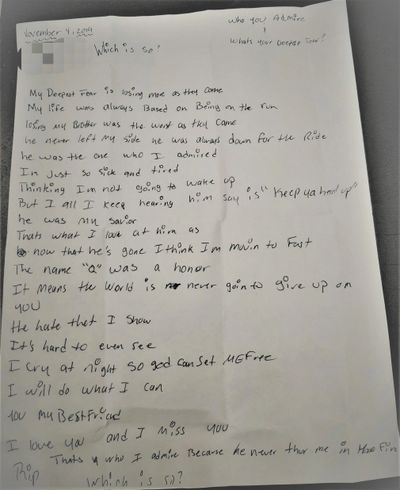 November 4, 2019
Who you Admire
Whats your Deepest Fear?
Which is so?
My Deepest Fear is losing more as they come
My life was always Based on Being on the run
losing my Brother was the worst as they came
he never left my side he was always down for the Ride
he was the one who I admired
I'm just so sick and tired
Thinking I'm not going to wake up
But I all I keep hearing him say is "keep ya head up"
he was my savior
Thats what I look at him as
now that he's gone I think I'm movin to Fast
The name "Q" was a honor
It means the World is never goin to give up on
you
the hate that I show
It's hard to even see
I cry at night so god can set ME Free
I will do what I can
you my BestFriend
I love you and I miss you
Thats who I admire Because he never thur me in
Rip
Which is so?